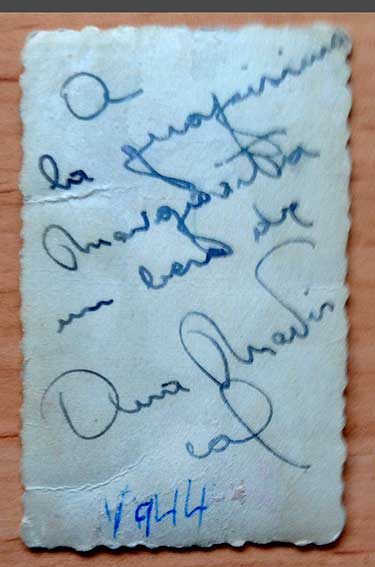 A
la guapisima
Margarita
un beso de
Ana Maris
cal
1944